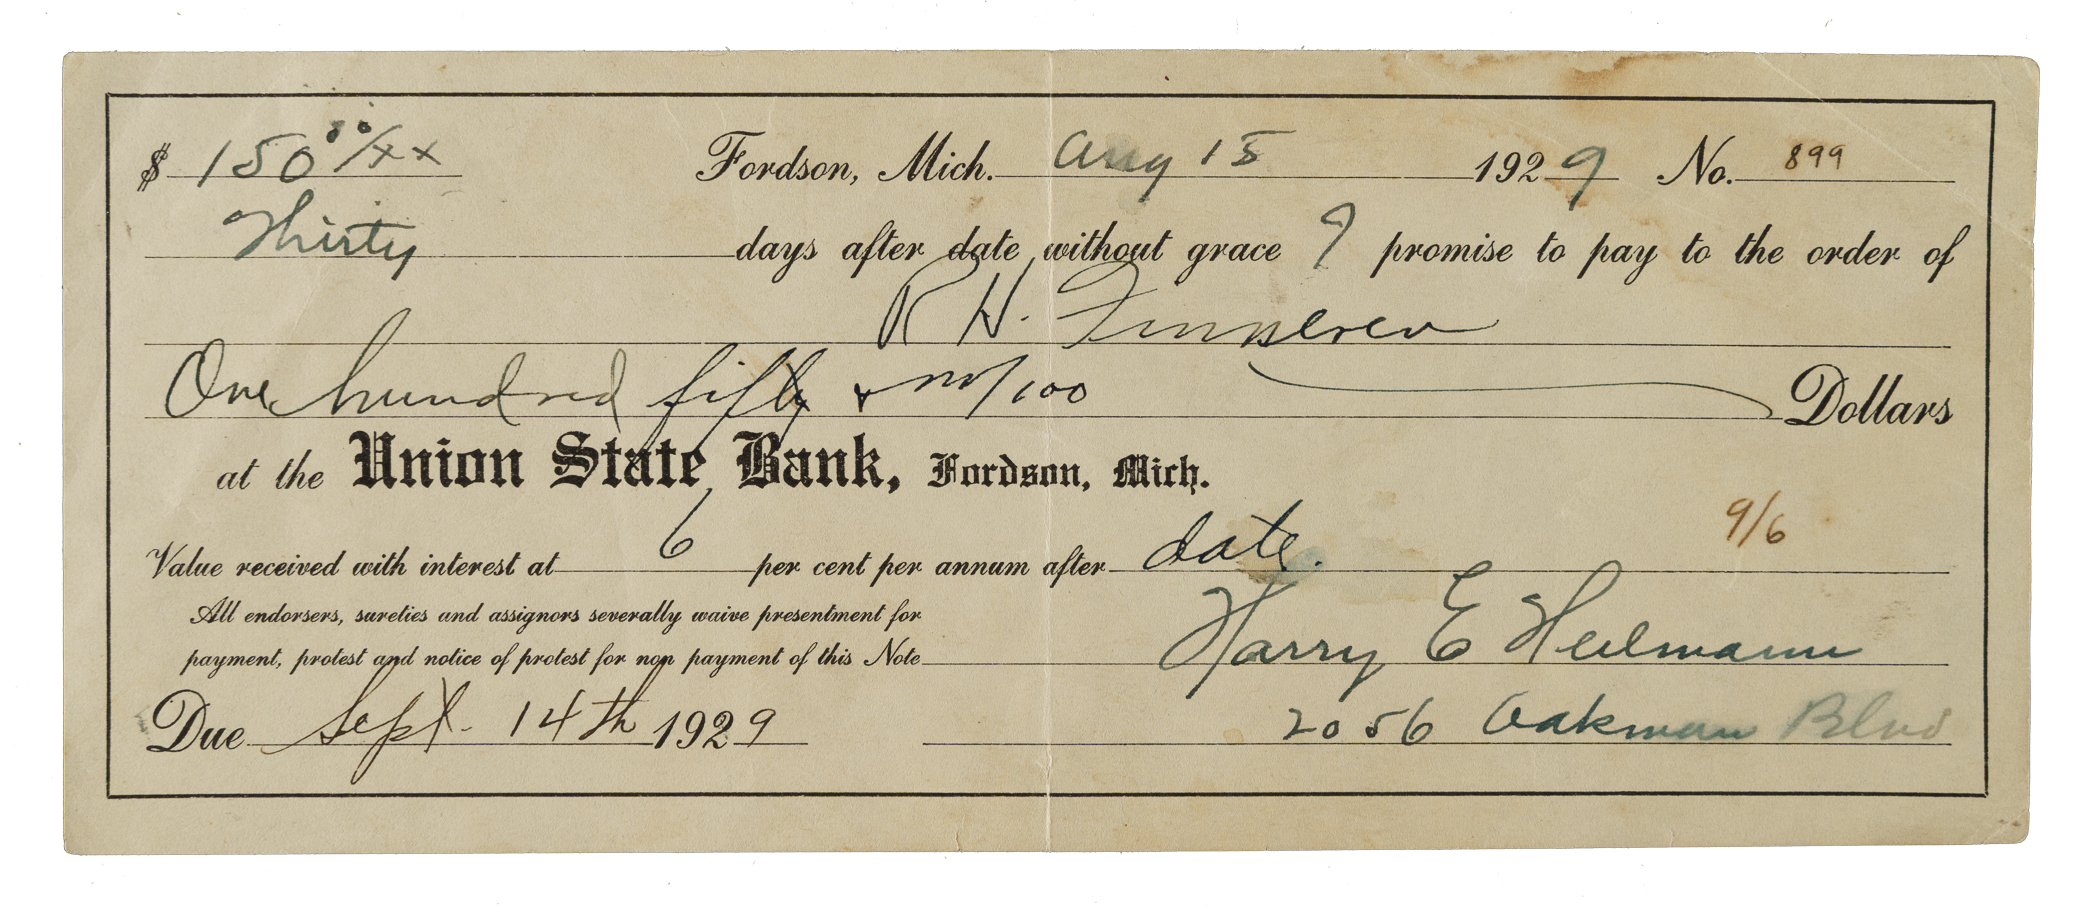 $ 150 00/xx Fordson, Mich. Aug 15 1929 No. 899
Thirty days after date without grace I promise to pay to the order of
R H.
One hundred fifty & no/100 Dollars
at the Union State Bank, Fordson, Mich.
9/6
Value received with interest at 6 per cent per annum after date.
All endorsers, sureties and assignors severally waive presentment for
payment, protest and notice of protest for non payment of this Note Harry E Heilmann
Due Sept. 14th 1929 2056 Oakman Blvd